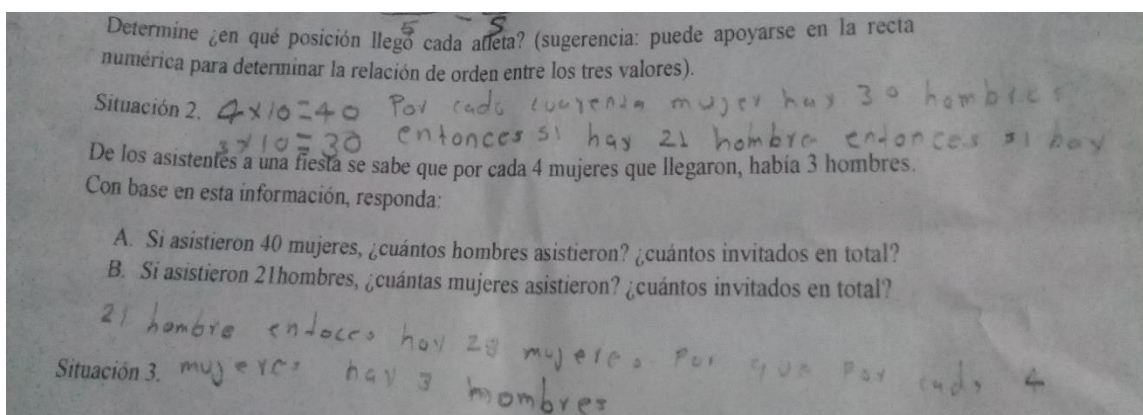 5 - 5
Determine ¿en qué posición llegó cada atleta? (sugerencia: puede apoyarse en la recta
numérica para determinar la relación de orden entre los tres valores).
Situación 2. 4x10=40 Por cada cuarenta mujer hay 30 hombres
3x10=30 entonces si hay 21 hombre entonces si hay
De los asistentes a una fiesta se sabe que por cada 4 mujeres que llegaron, había 3 hombres.
Con base en esta información, responda:
A. Si asistieron 40 mujeres, ¿cuántos hombres asistieron? ¿cuántos invitados en total?
B. Si asistieron 21hombres, ¿cuántas mujeres asistieron? ¿cuántos invitados en total?
21 hombre endoces hay 28 mujeres por que por cada 4
Situación 3. mujeres hay 3 hombres